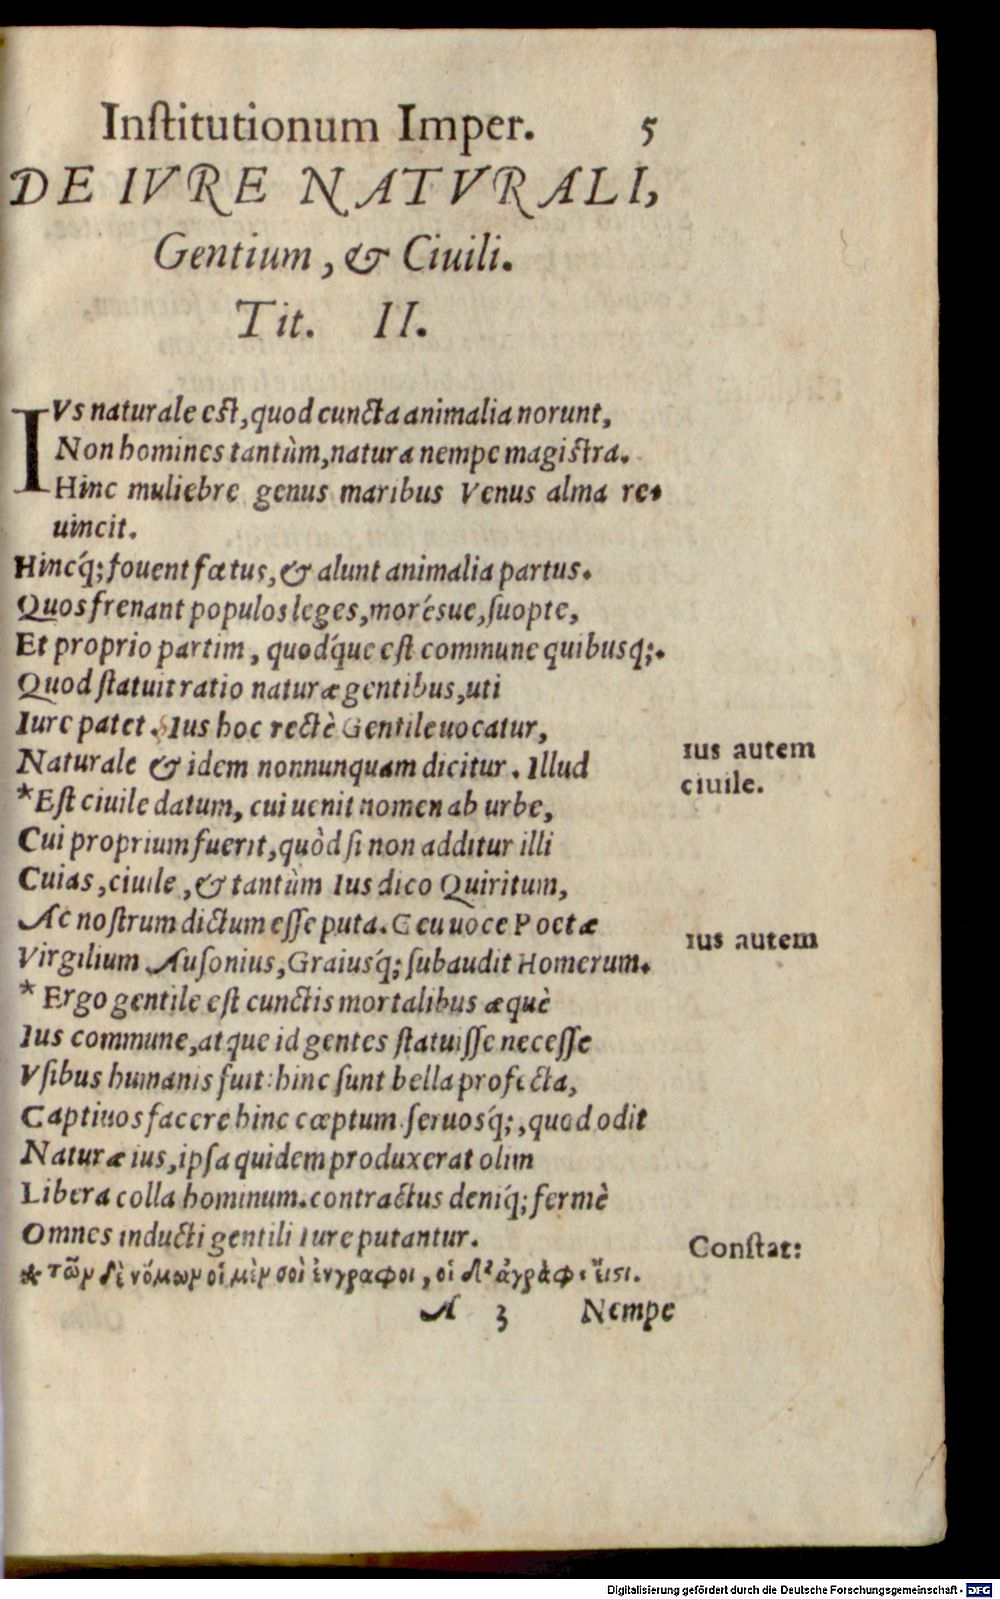 Inſtitutionum Imper. 5
DE IVRE NATVRALI,
Gentium, & Ciuili.
Tit. II.
IVs naturale eſt, quod cuncta animalia norunt,
Non homines tantùm, natura nempe magiſtra.
Hinc muliebre genus maribus Venus alma re-
uincit.
Hincq́; fouent fœtus, & alunt animalia partus.
Quos frenant populos leges, morésue, ſuopte,
Et proprio partim, quod́que eſt commune quibusq́;.
Quod ſtatuit ratio naturæ gentibus, uti
Iure patet. Ius hoc rectè Gentile uocatur,
Naturale & idem nonnunquam dicitur. Illud
ius autem
ciuile.
*Eſt ciuile datum, cui uenit nomen ab urbe,
Cui proprium fuerit, quòd ſi non additur illi
Cuias, ciuile, & tantùm Ius dico Quiritum,
Ac noſtrum dictum eſſe puta. Ceu uoce Poetæ
ius autem
Virgilium Auſonius, Graiusq́; ſubaudit Homerum.
* Ergo gentile eſt cunctis mortalibus æquè
Ius commune, atque id gentes ſtatuiſſe neceſſe
Vſibus humanis fuit: hinc ſunt bella profecta,
Captiuos facere hinc cœptum ſeruosq́;, quod odit
Naturæ ius, ipſa quidem produxerat olim
Libera colla hominum. contractus deniq́; fermè
Omnes inducti gentili iure putantur.
Conſtat:
* τῶν δὲ νόμων οἱ μὲν σοὶ ἔνγραφοι, οἱ δ' ἄγραφοι εἰσι.
A 3 Nempe
Digitalisierung gefördert durch die Deutsche Forschungsgemeinschaft - DFG